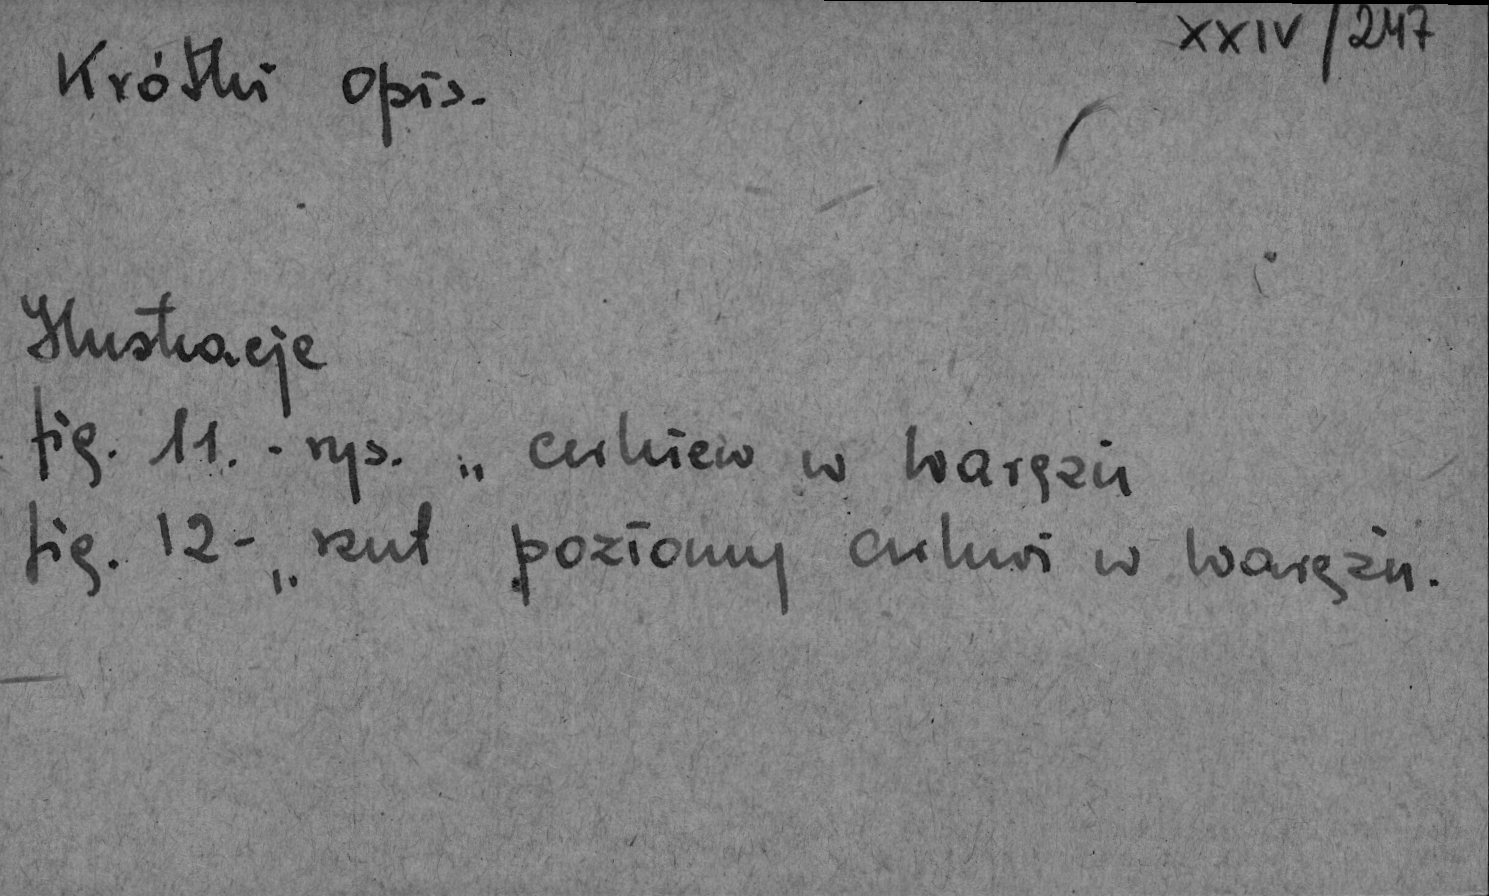 XXIV/247
Krótki opis.
Ilustracje
fig. 11. - rys. „ cerkiew w Waręzu
fig. 12 - „ rzut poziomy cerkwi w Waręzu.